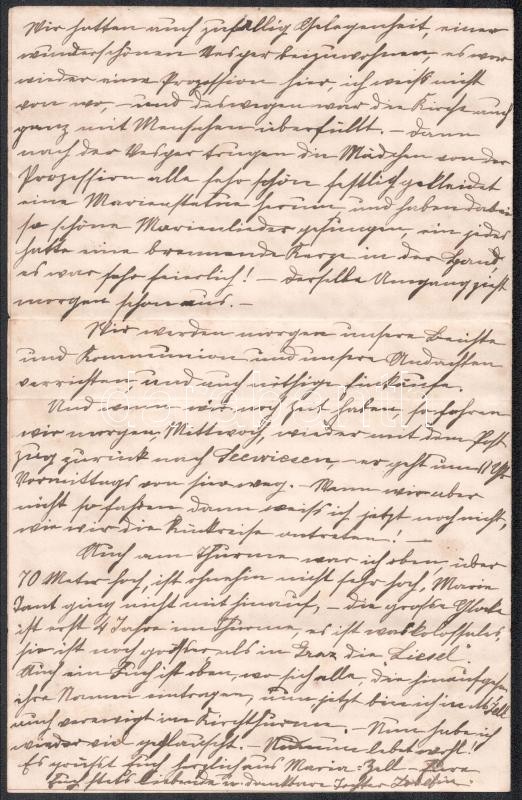 Wir hatten auch zufällig Gelegenheit, einer
wunderschönen Vesper beizuwohnen, es war
wieder eine Prozession hier, ich weiß nicht
von wo, – und deswegen war die Kirche auch
ganz mit Menschen überfüllt. – Dann
nach der Vesper trugen die Mädchen von der
Prozession alle sehr schön festlich gekleidet
eine Marienstatue herum und haben dabei
so schöne Marienlieder gesungen, ein jedes
hatte eine brennende Kerze in der Hand,
es war sehr feierlich! – derselbe Umgang zieht
morgen schon aus. –
Wir werden morgen unsere Beichte
und Kommunion und unsere Andachten
verrichten und auch nöthige Einkäufe.
Und wenn wir noch Zeit haben, so fahren
wir morgen, Mittwoch, wieder mit dem Post
zug zurück nach Seewiesen, – er geht um 11 Uhr
Vormittags von hier weg. – Wenn wir aber
nicht so fahren dann weiß ich jetzt noch nicht,
wie wir die Rückreise antreten! –
Auch am Thurme war ich oben, über
70 Meter hoch, ist ohnehin nicht sehr hoch, Marie
Tant ging nicht mit hinauf, – die große Glocke
ist erst 4 Jahre im Thurme, es ist was kolossales,
sie ist noch größer als in Graz die "Liesel"
Auch ein Buch ist oben, wo sich alle, die hinaufgehen
ihre Namen eintragen, nun jetzt bin ich in M. Zell
auch verewigt im Kirchthurme. – Nun habe ich
wieder viel geplauscht. – Nun lebet wohl!
Es grüßt Euch herzlichst aus Maria-Zell – Eure
Euch stets liebende u. dankbare Tochter
darabanth